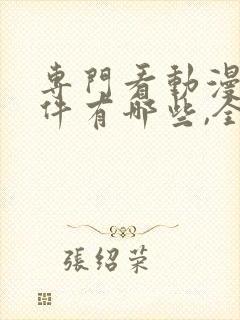 專門看動漫
件有哪些,全
張紹荣